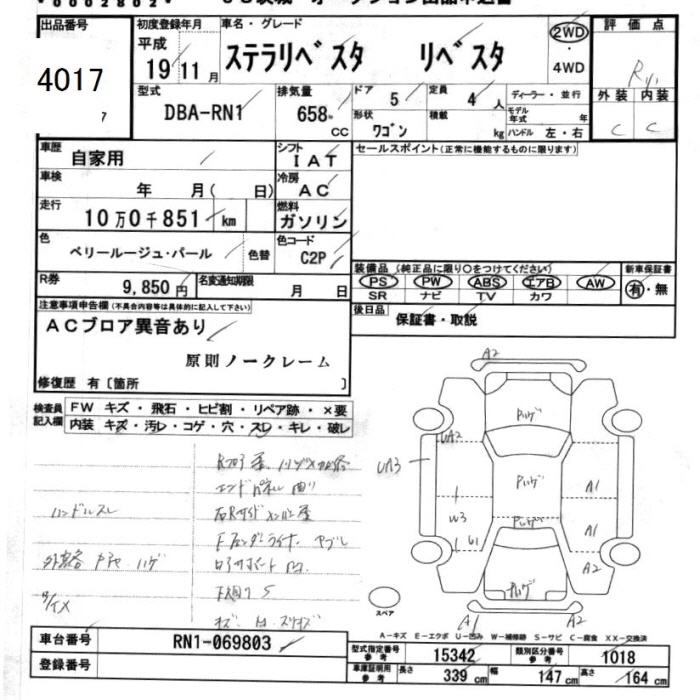 *0002802*
出品番号
4017
初度登録年月
平成
19年11月
車名・グレード
ステラリベスタ リベスタ
2WD
4WD
評価点
外装 内装
C C
型式
DBA-RN1
排気量
658 CC
ドア 5
定員 4人
形状 ワゴン
積載 kg
ディーラー・並行
モデル年式 年
ハンドル 左・右
車歴
自家用
シフト
IAT
セールスポイント(正常に機能するものに限ります)
車検
年 月( 日)
冷房
AC
走行
10万0千851km
燃料
ガソリン
色
ベリールージュ・パール
色替
色コード
C2P
R券
9,850円
名変通知期限
月 日
装備品(純正品に限り○をつけてください)
PS PW ABS エアB AW
SR ナビ TV カワ
新車保証書
有・無
後日品
保証書・取説
注意事項申告欄(不具合内容等は具体的に記入して下さい)
ACブロア異音あり
原則ノークレーム
修復歴 有〔箇所 〕
検査員記入欄
FW キズ・飛石・ヒビ割・リペア跡・×要
内装 キズ・汚レ・コゲ・穴・スレ・キレ・破レ
ハンドルスレ
エンドパネル曲り
A2
UA2
UA3
W3
A1
A1
A2
A1
A2
スペア
A-キズ E-エクボ U-凹み W-補修跡 S-サビ C-腐食 XX-交換済
車台番号
RN1-069803
登録番号
型式指定番号 参考
15342
類別区分番号 参考
1018
車庫証明用 参考
長さ 339cm
幅 147cm
高さ 164cm